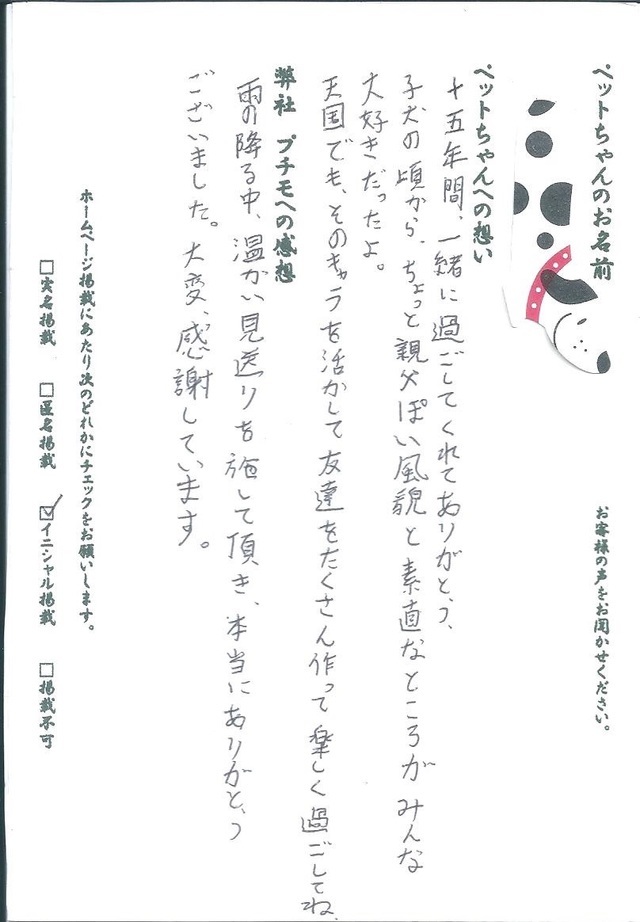 お客様の声をお聞かせください。
ペットちゃんのお名前
ペットちゃんへの想い
十五年間、一緒に過ごしてくれてありがとう、
子犬の頃から、ちょっと親父ぽい風貌と素直なところがみんな
大好きだったよ。
天国でも、そのキャラを活かして友達をたくさん作って楽しく過ごしてね
弊社 プチモへの感想
雨の降る中、温かい見送りを施して頂き、本当にありがとう
ございました。大変、感謝しています。
ホームページ掲載にあたり次のどれかにチェックをお願いします。
□実名掲載 □匿名掲載 ☑イニシャル掲載 □掲載不可